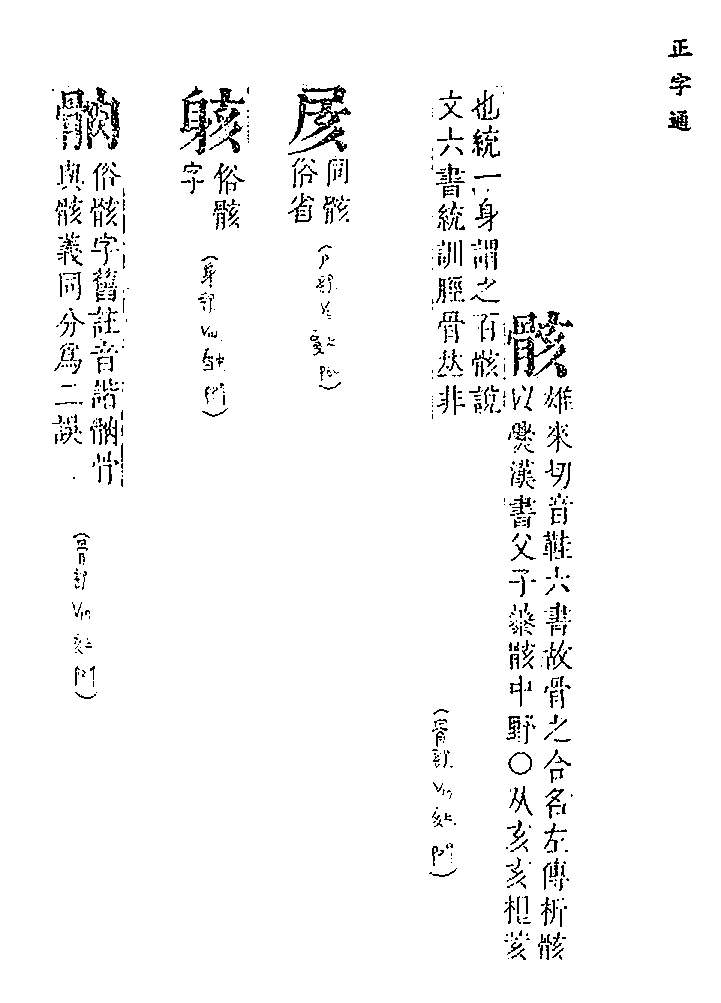 正字通
骸
雄來切音鞋六書故骨之合名左傳析骸
以爨漢書父子暴骸中野○从亥亥相荄
也統一身謂之百骸說
文六書統訓脛骨𠀤非
(骨部
同骸
俗省
俗骸
字
(身部
俗骸字舊註音諧骨
與骸義同分爲二誤
(骨部